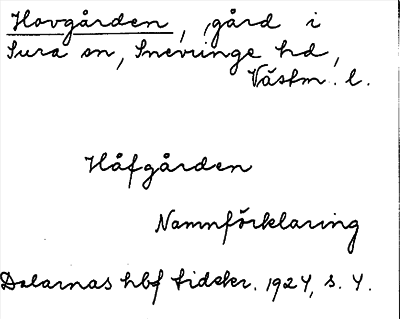 Hovgården, gård i
Sura sn, Snevringe hd,
Västm. l.
Håfgården
Namnförklaring
Dalarnas hbf tidskr. 1924, s. 4.